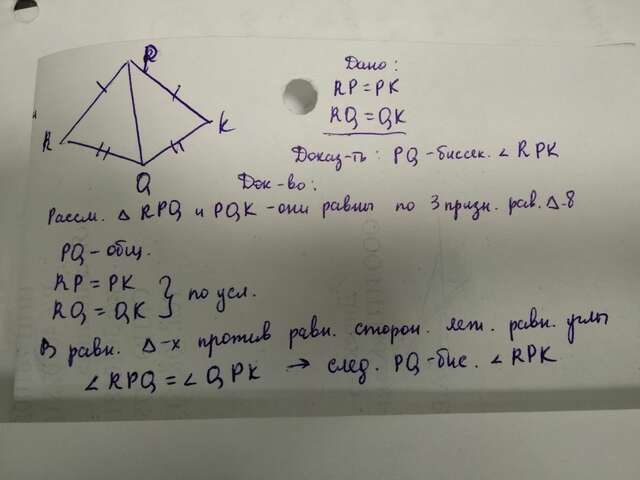 P
R
K
Q
Дано:
RP = PK
RQ = QK
Доказ-ть: PQ - биссек. ∠ RPK
Док-во:
Рассм. △ RPQ и PQK - они равны по 3 призн. рав. △-в
PQ - общ.
RP = PK
RQ = QK } по усл.
В равн. △-х против равн. сторон. леж. равн. углы
∠ RPQ = ∠ QPK → след. PQ - бис. ∠ RPK